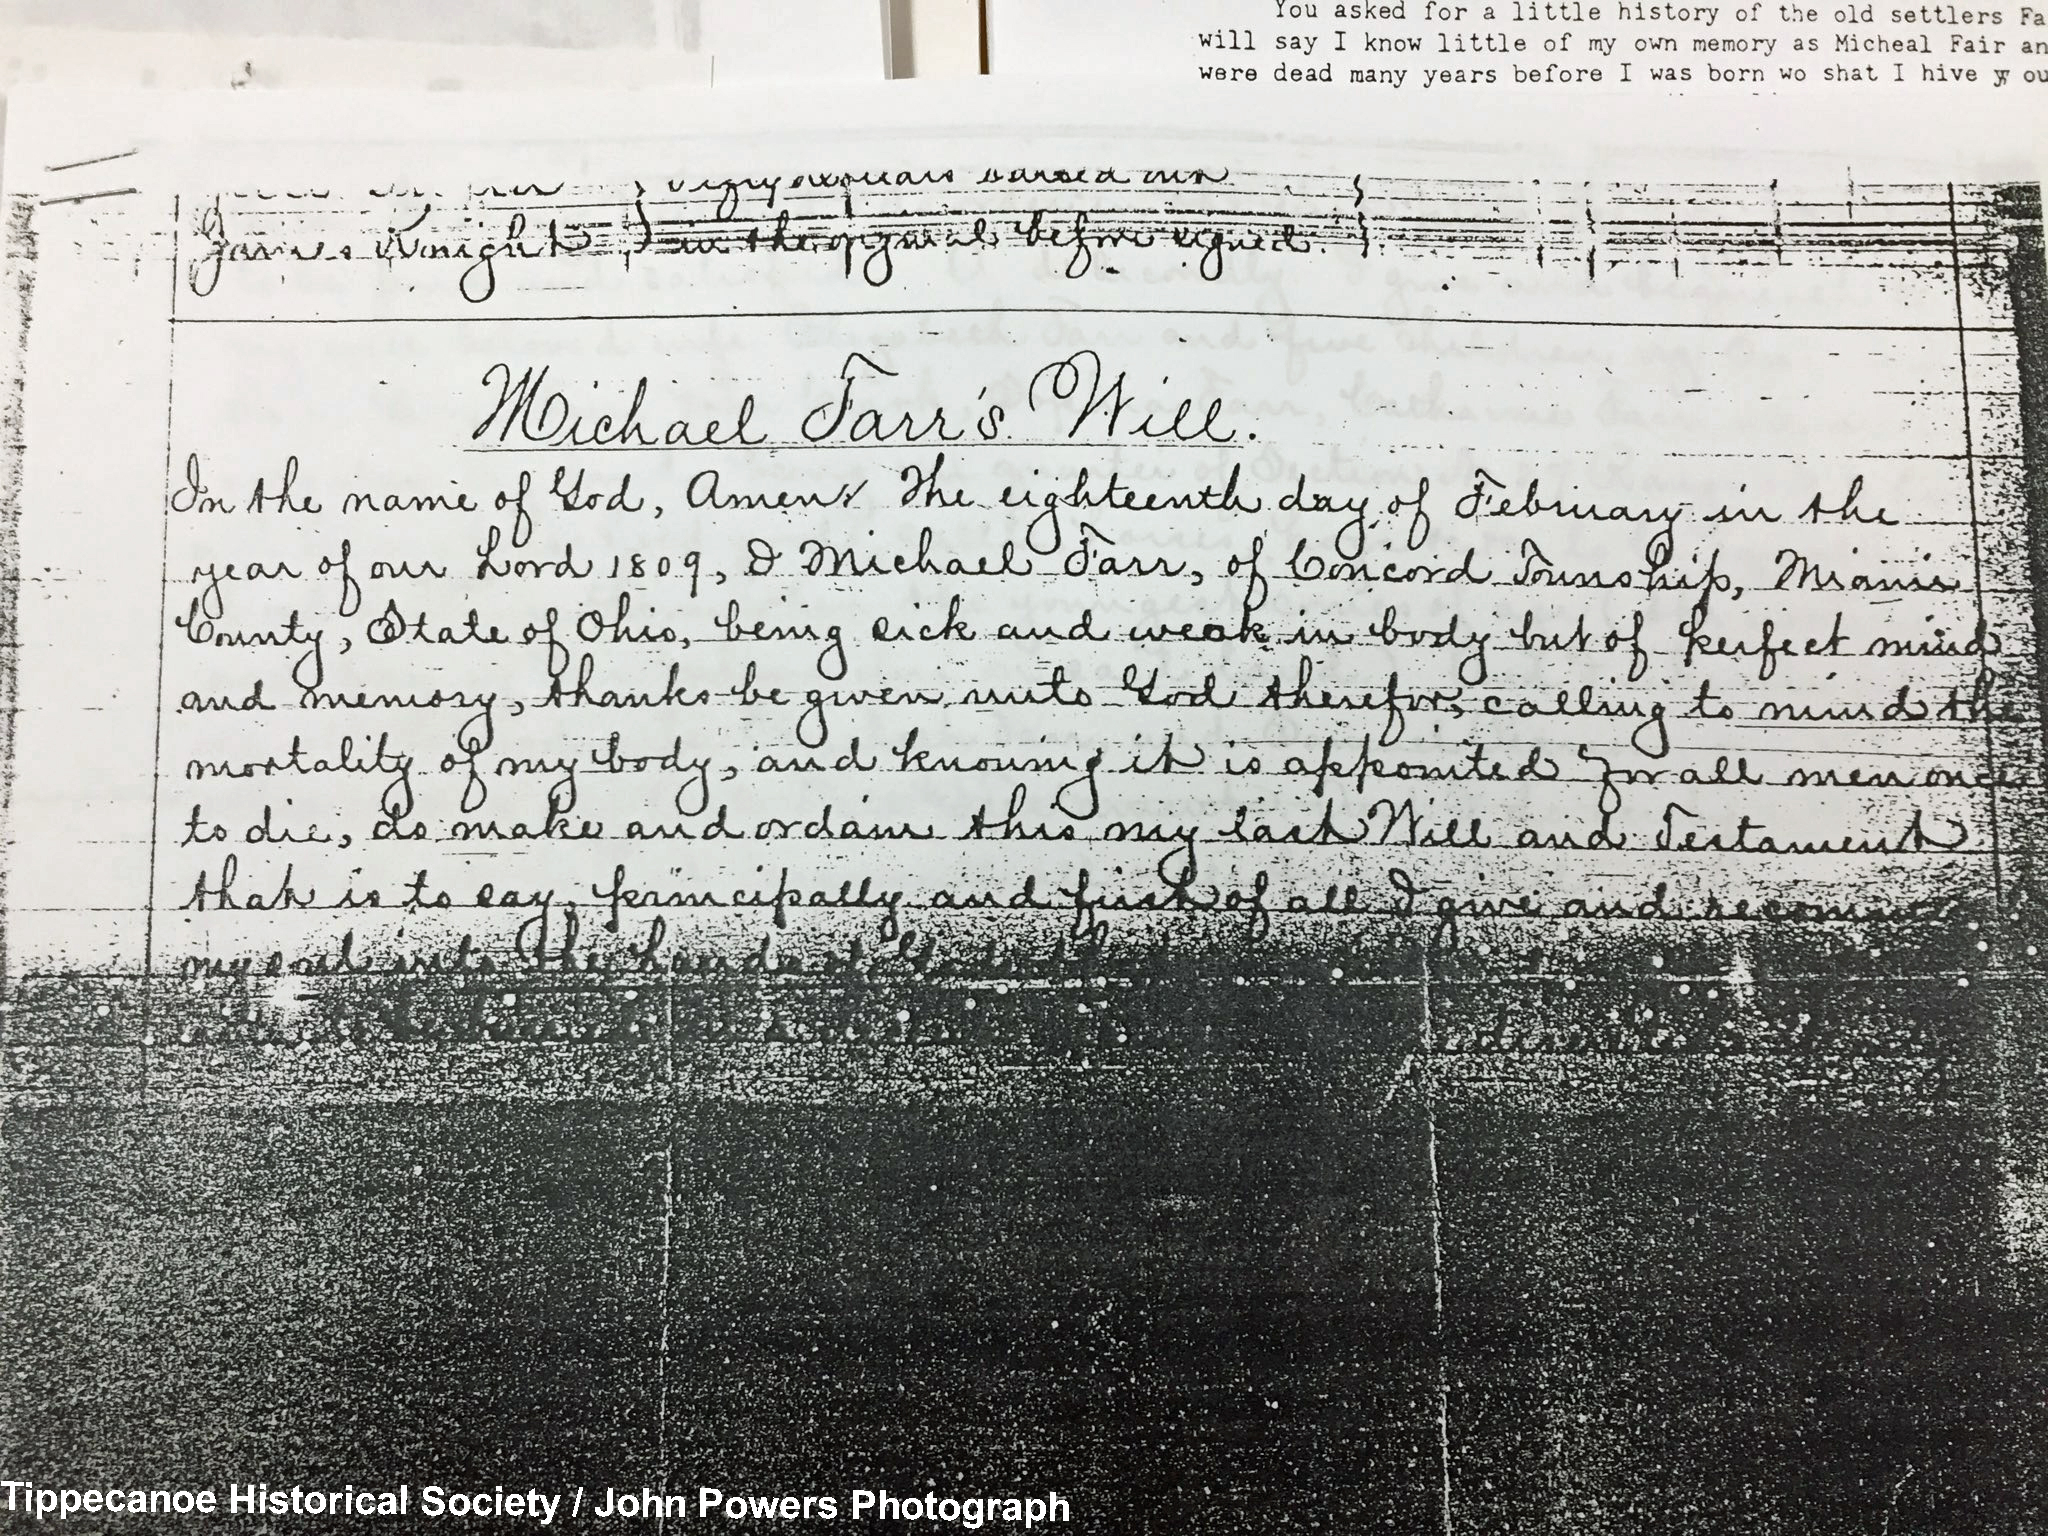 You asked for a little history of the old settlers Fa
will say I know little of my own memory as Micheal Fair an
were dead many years before I was born wo shat I hive y ou
James Knight } in the orginal before signed. }
Michael Farr's Will.
In the name of God, Amen. The eighteenth day of February in the
year of our Lord 1809, I Michael Farr, of Concord Township, Miami
County, State of Ohio, being sick and weak in body but of perfect mind
and memory, thanks be given unto God therefor, calling to mind the
mortality of my body, and knowing it is appointed for all men once
to die, do make and ordain this my last Will and Testament
that is to say, principally and first of all I give and recomm
my soul into the hands of
Tippecanoe Historical Society / John Powers Photograph